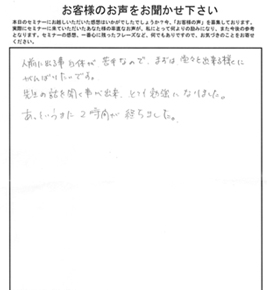 お客様のお声をお聞かせ下さい
本日のセミナーにお越しいただいた感想はいかがでしたでしょうか？今、「お客様の声」を募集しております。
実際にセミナーに来ていただいたあなた様の率直なお声が、私にとって何よりの励みになり、また今後の参考
となります。セミナーの感想、一番心に残ったフレーズなど、何でもありですので、お気づきのことをお寄せ
ください。
人前に出る事自体が苦手なので、まずは堂々と出来る様に
がんばりたいです。
先生の話を聞く事が出来、とても勉強になりました。
あっというまに2時間が経ちました。